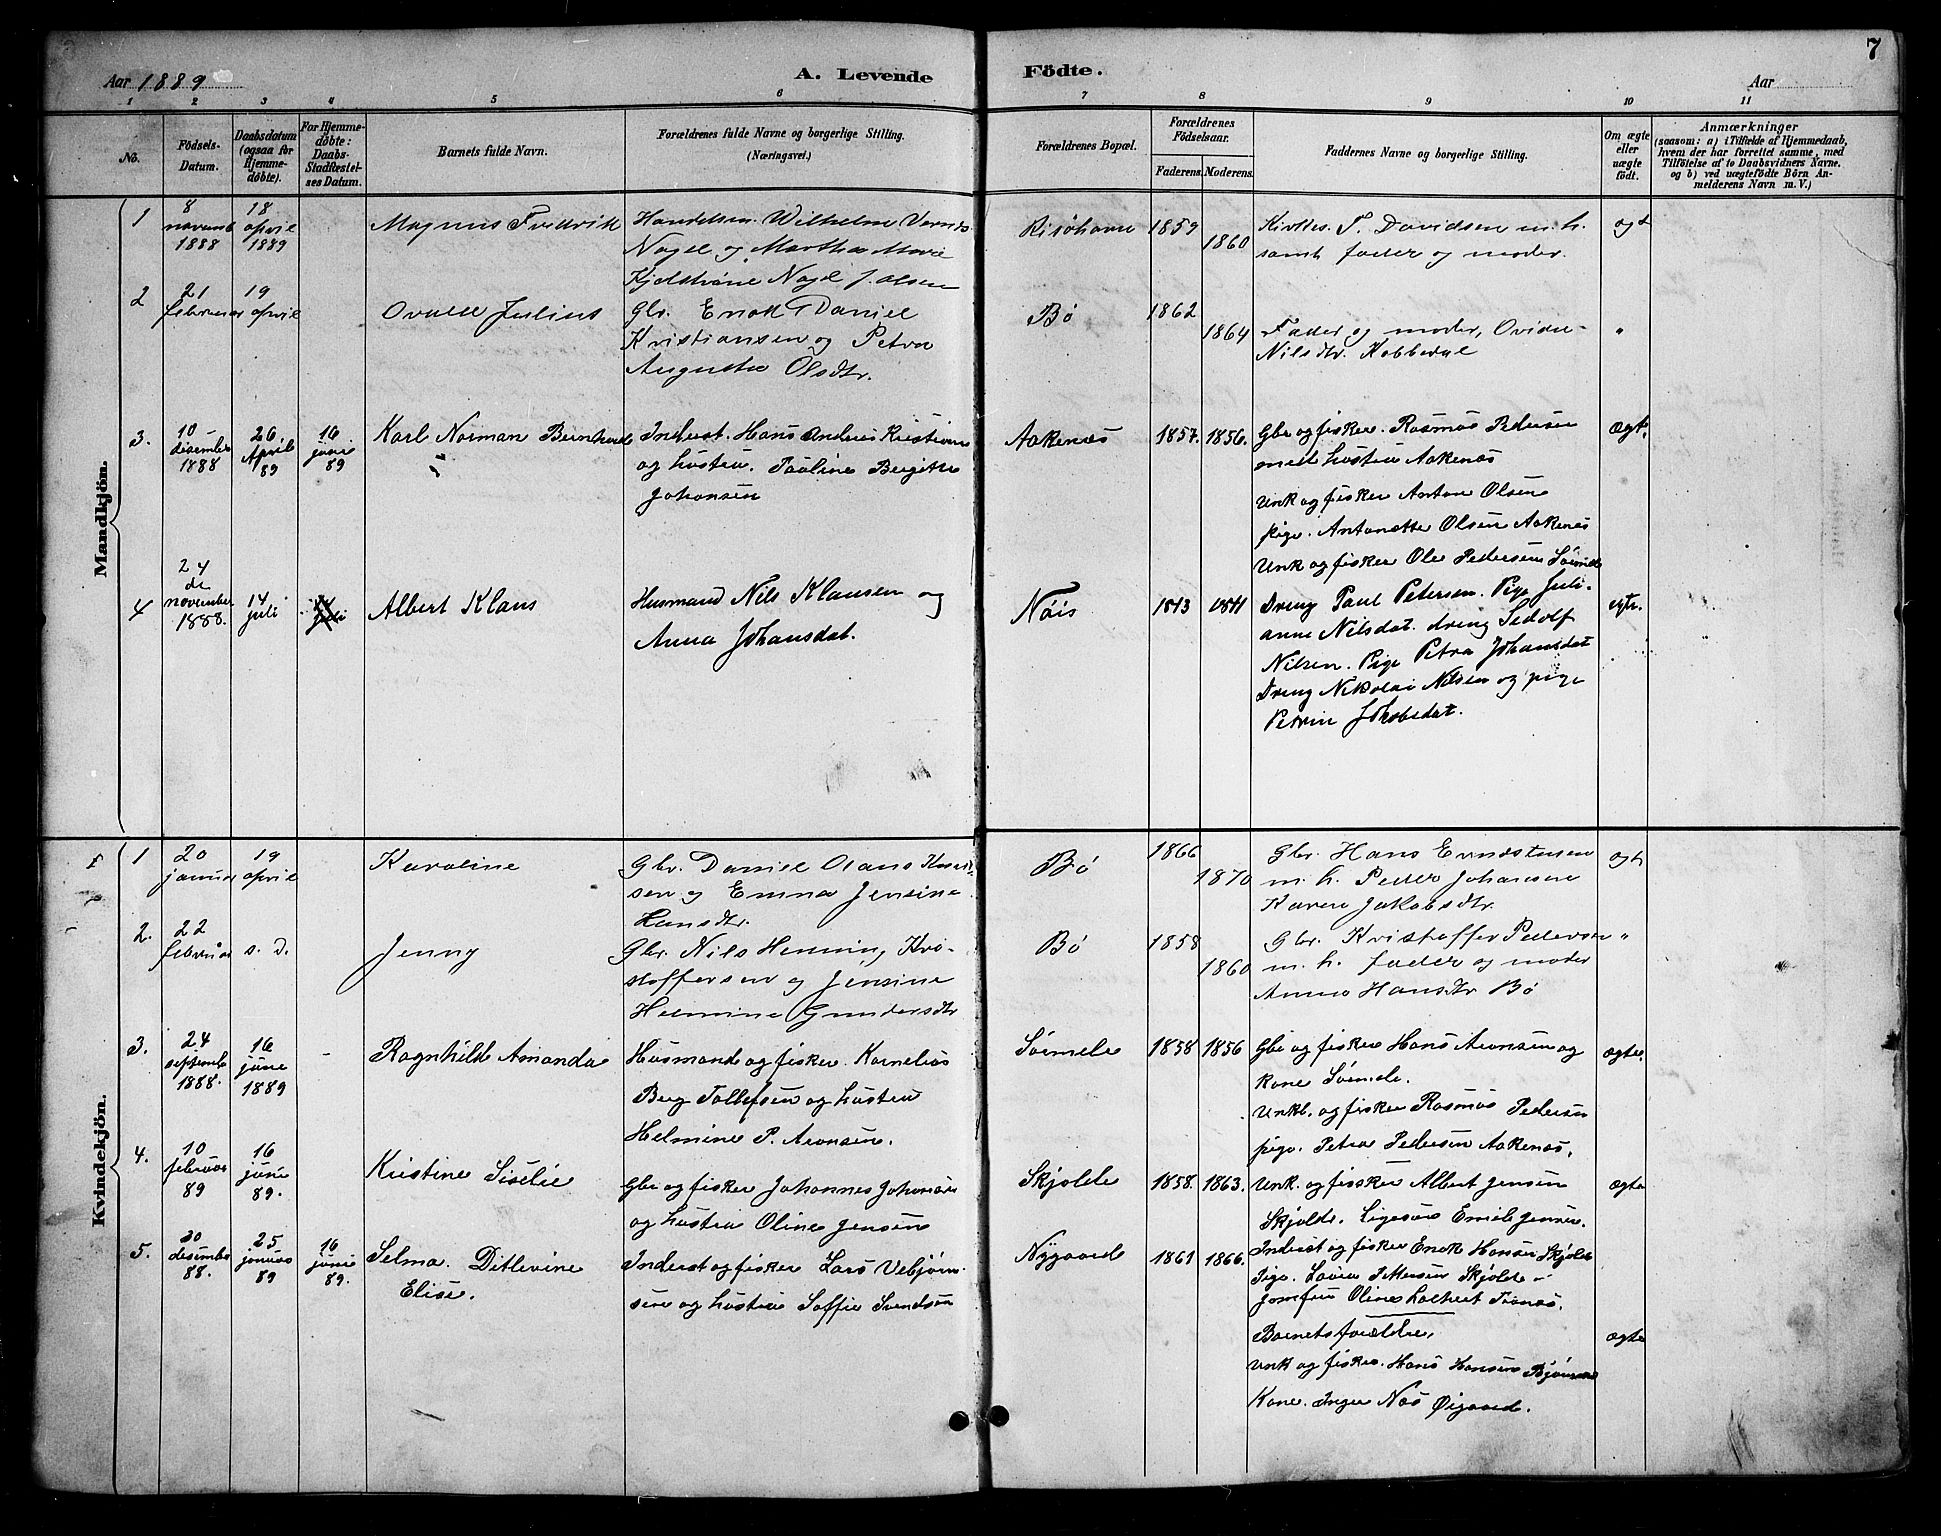 7
Aar 1889
A. Levende Födte.
Aar
1 2 3 4 5 6 7 8 9 10 11
No.
Födsels-
Datum.
Daabsdatum
(ogsaa for
Hjemme-
döbte).
For Hjemme-
döbte:
Daabs-
Stadfæstel-
ses Datum.
Barnets fulde Navn.
Forældrenes fulde Navne og borgerlige Stilling.
(Næringsvei.)
Forældrenes Bopæl.
Forældrenes
Födselsaar.
Faderens. Moderens.
Faddernes Navne og borgerlige Stilling.
Om ægte
eller
uægte
født.
Anmærkninger
(saasom: a) i Tilfælde af Hjemmedaab,
hvem der har forrettet samme, med
Tilföielse af to Daabsvidners Navne.
og b) ved uægtefödte Börn An-
melderens Navn m. V.)
Mandkjön.
1
8
novemb
1888
18
april
1889
Magnus Fredrik
Handelsm. Wilhelm
Nagel og Martha Marie
Nagel f. Olsen
Risøhavn
1859
1860
T. Davidsen m. h.
samt fader og moder.
2
21
februar
19
april
Julius
Gbr. Enok Daniel
Kristiansen og Petra
Augusta Olsdtr.
Bø
1862
1864
Fader og moder,
Nilsdtr. Kobbedal
"
3.
10
desember
1888
26
April
89
16
juni
89
Karl Norman Bernhard
Inderst. Hans Anderes Kristian
og hustru. Pauline Bergitte
Johansen
Aakenæs
1857. 1856.
Gbr og fisker. Rasmus Pedersen
med hustru Aakenæs
Unk og fisker Anton Olsen
pige. Antonette Olsen Aakenæs
Unk og fisker Ole Pedersen
ægte
4
24
de
november
1888.
14
juli
juli
Albert Klaus
Husmand Nils Klausen og
Anna Johansdat.
Nöis
1843 1841
Dreng Paul Petersen. Pige Juli-
anne Nilsdat. dreng Sedolf
Nilsen. Pige Petra Johansdat
Dreng Nikolai Nilsen og pige
Petrin
egte.
Kvindekjön.
1
20
januar
19
april
Karoline
Gbr. Daniel Olaus
sen og Emma Jensine
Hansdtr.
Bø
1866
1870
Gbr. Hans
m. h. Peder Johansen
Karen Jakobsdtr.
2.
22
februar
s. d.
Jenny
Gbr. Nils Henning Kri-
stoffersen og Jensine
Helmine Gundersdtr
Bø
1858
1860
Gbr. Kristoffer Pedersen "
m. h. fader og moder
Anna Hansdtr Bø
3.
24
septembe
1888.
16
june
1889
-
Ragnhilde Amanda
Husmand og fisker. Kornelius
Berg Tollefsen og hustru
Helmine P. Aronsen.
1858 1856
Gbr og fisker Hans Aronsen og
kone
Unkl. og fisker Rasmus Pedersen
pige. Petra Pedersen Aakenæs.
ægte
4.
10
februar
89
16
june
89.
Kristine Siselie
Gbr og fisker Johannes Johansen
og hustru Oline Jensen
Skjolde
1858. 1863.
Unk. og fissker Albert Jensen
Skjolde. Emele Jensen.
Inderst og fisker Enok Hansen Skjolde
Pige. Skjolde -
jomfru Oline
ægte
5.
20
desembe
88.
25
januar
89
16
june
89.
Selma. Ditlevine
Elise.
Inderst og fisker Lars Vebjørn-
sen og hustru Soffie Svendsen
Nygaard
1861 1866.
Barnets forældre,
Unk og fisker. Hans Hansen
Kone. Inger
ægte